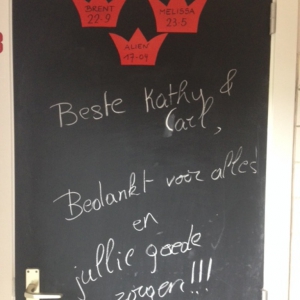 BRENT
22-9
MELISSA
23-5
ALIEN
17-04
Beste Kathy &
Carl,
Bedankt voor alles!
en
jullie goede
zorgen!!!